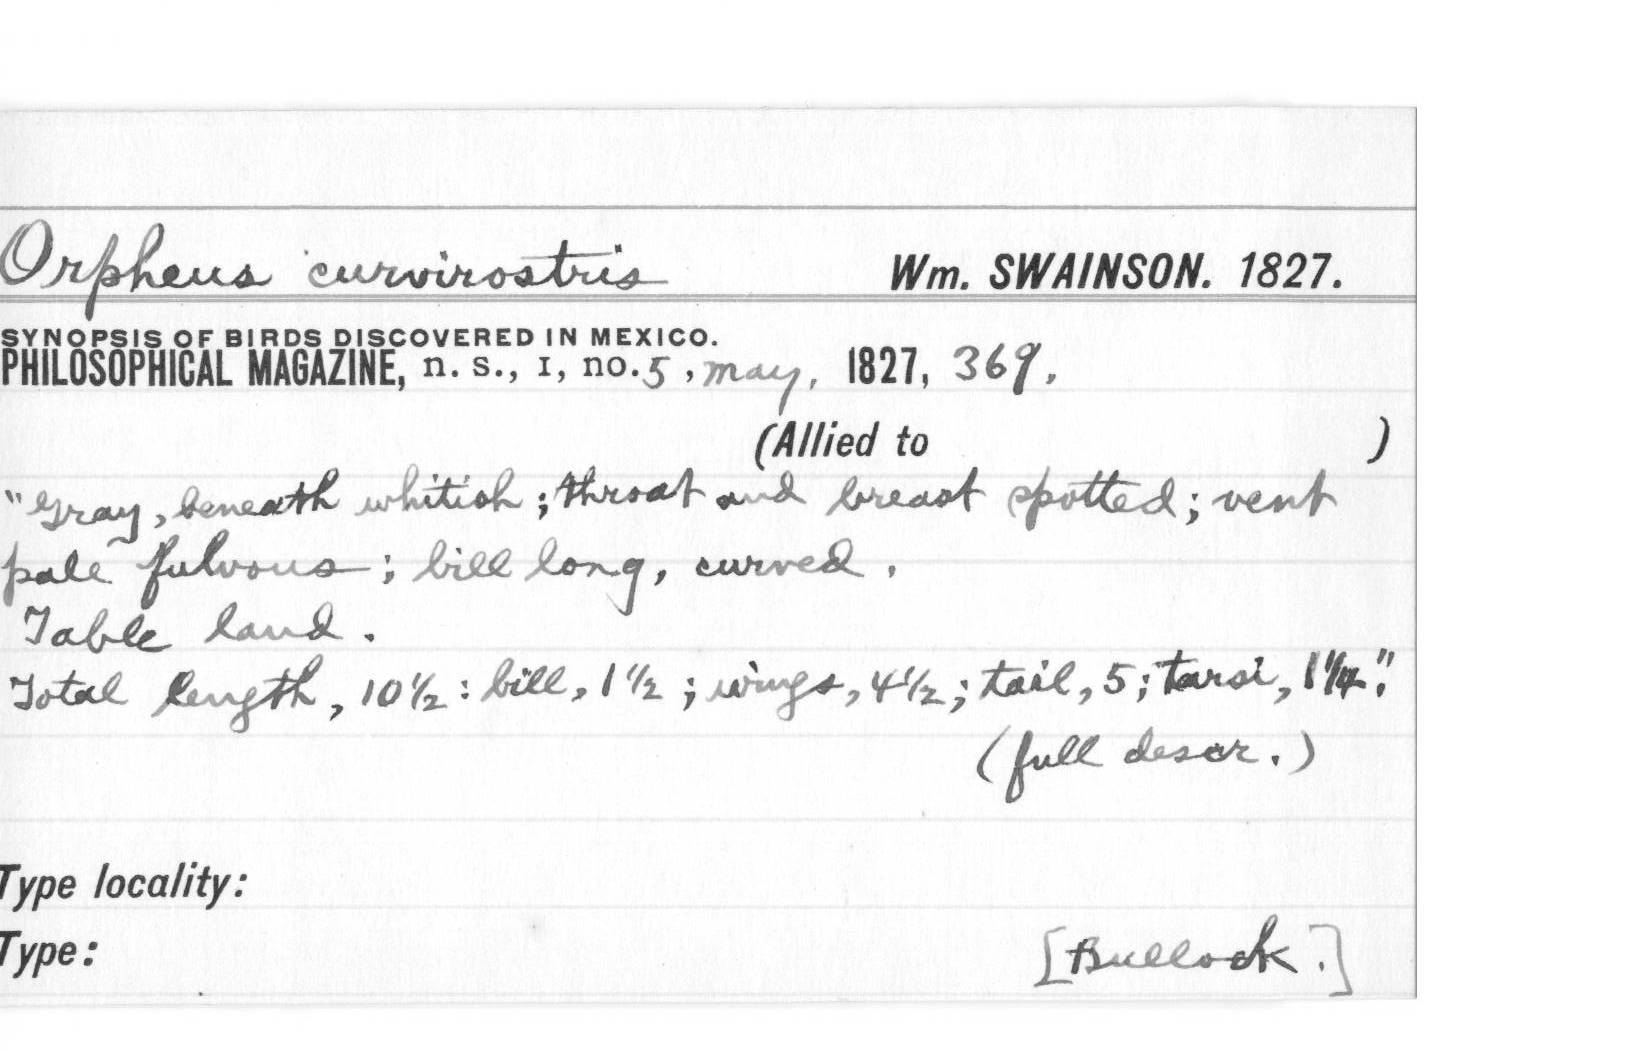 Orpheus curvirostris Wm. SWAINSON. 1827.
SYNOPSIS OF BIRDS DISCOVERED IN MEXICO.
PHILOSOPHICAL MAGAZINE, n. s., I, no. 5, may, 1827, 369.
(Allied to )
"Gray, beneath whitish; throat and breast spotted; vent
pale fulvous; bill long, curved.
Table land.
Total length, 10½: bill, 1½; wings, 4½; tail, 5; tarsi, 1¼."
(full descr.)
Type locality:
Type: [Bullock.]